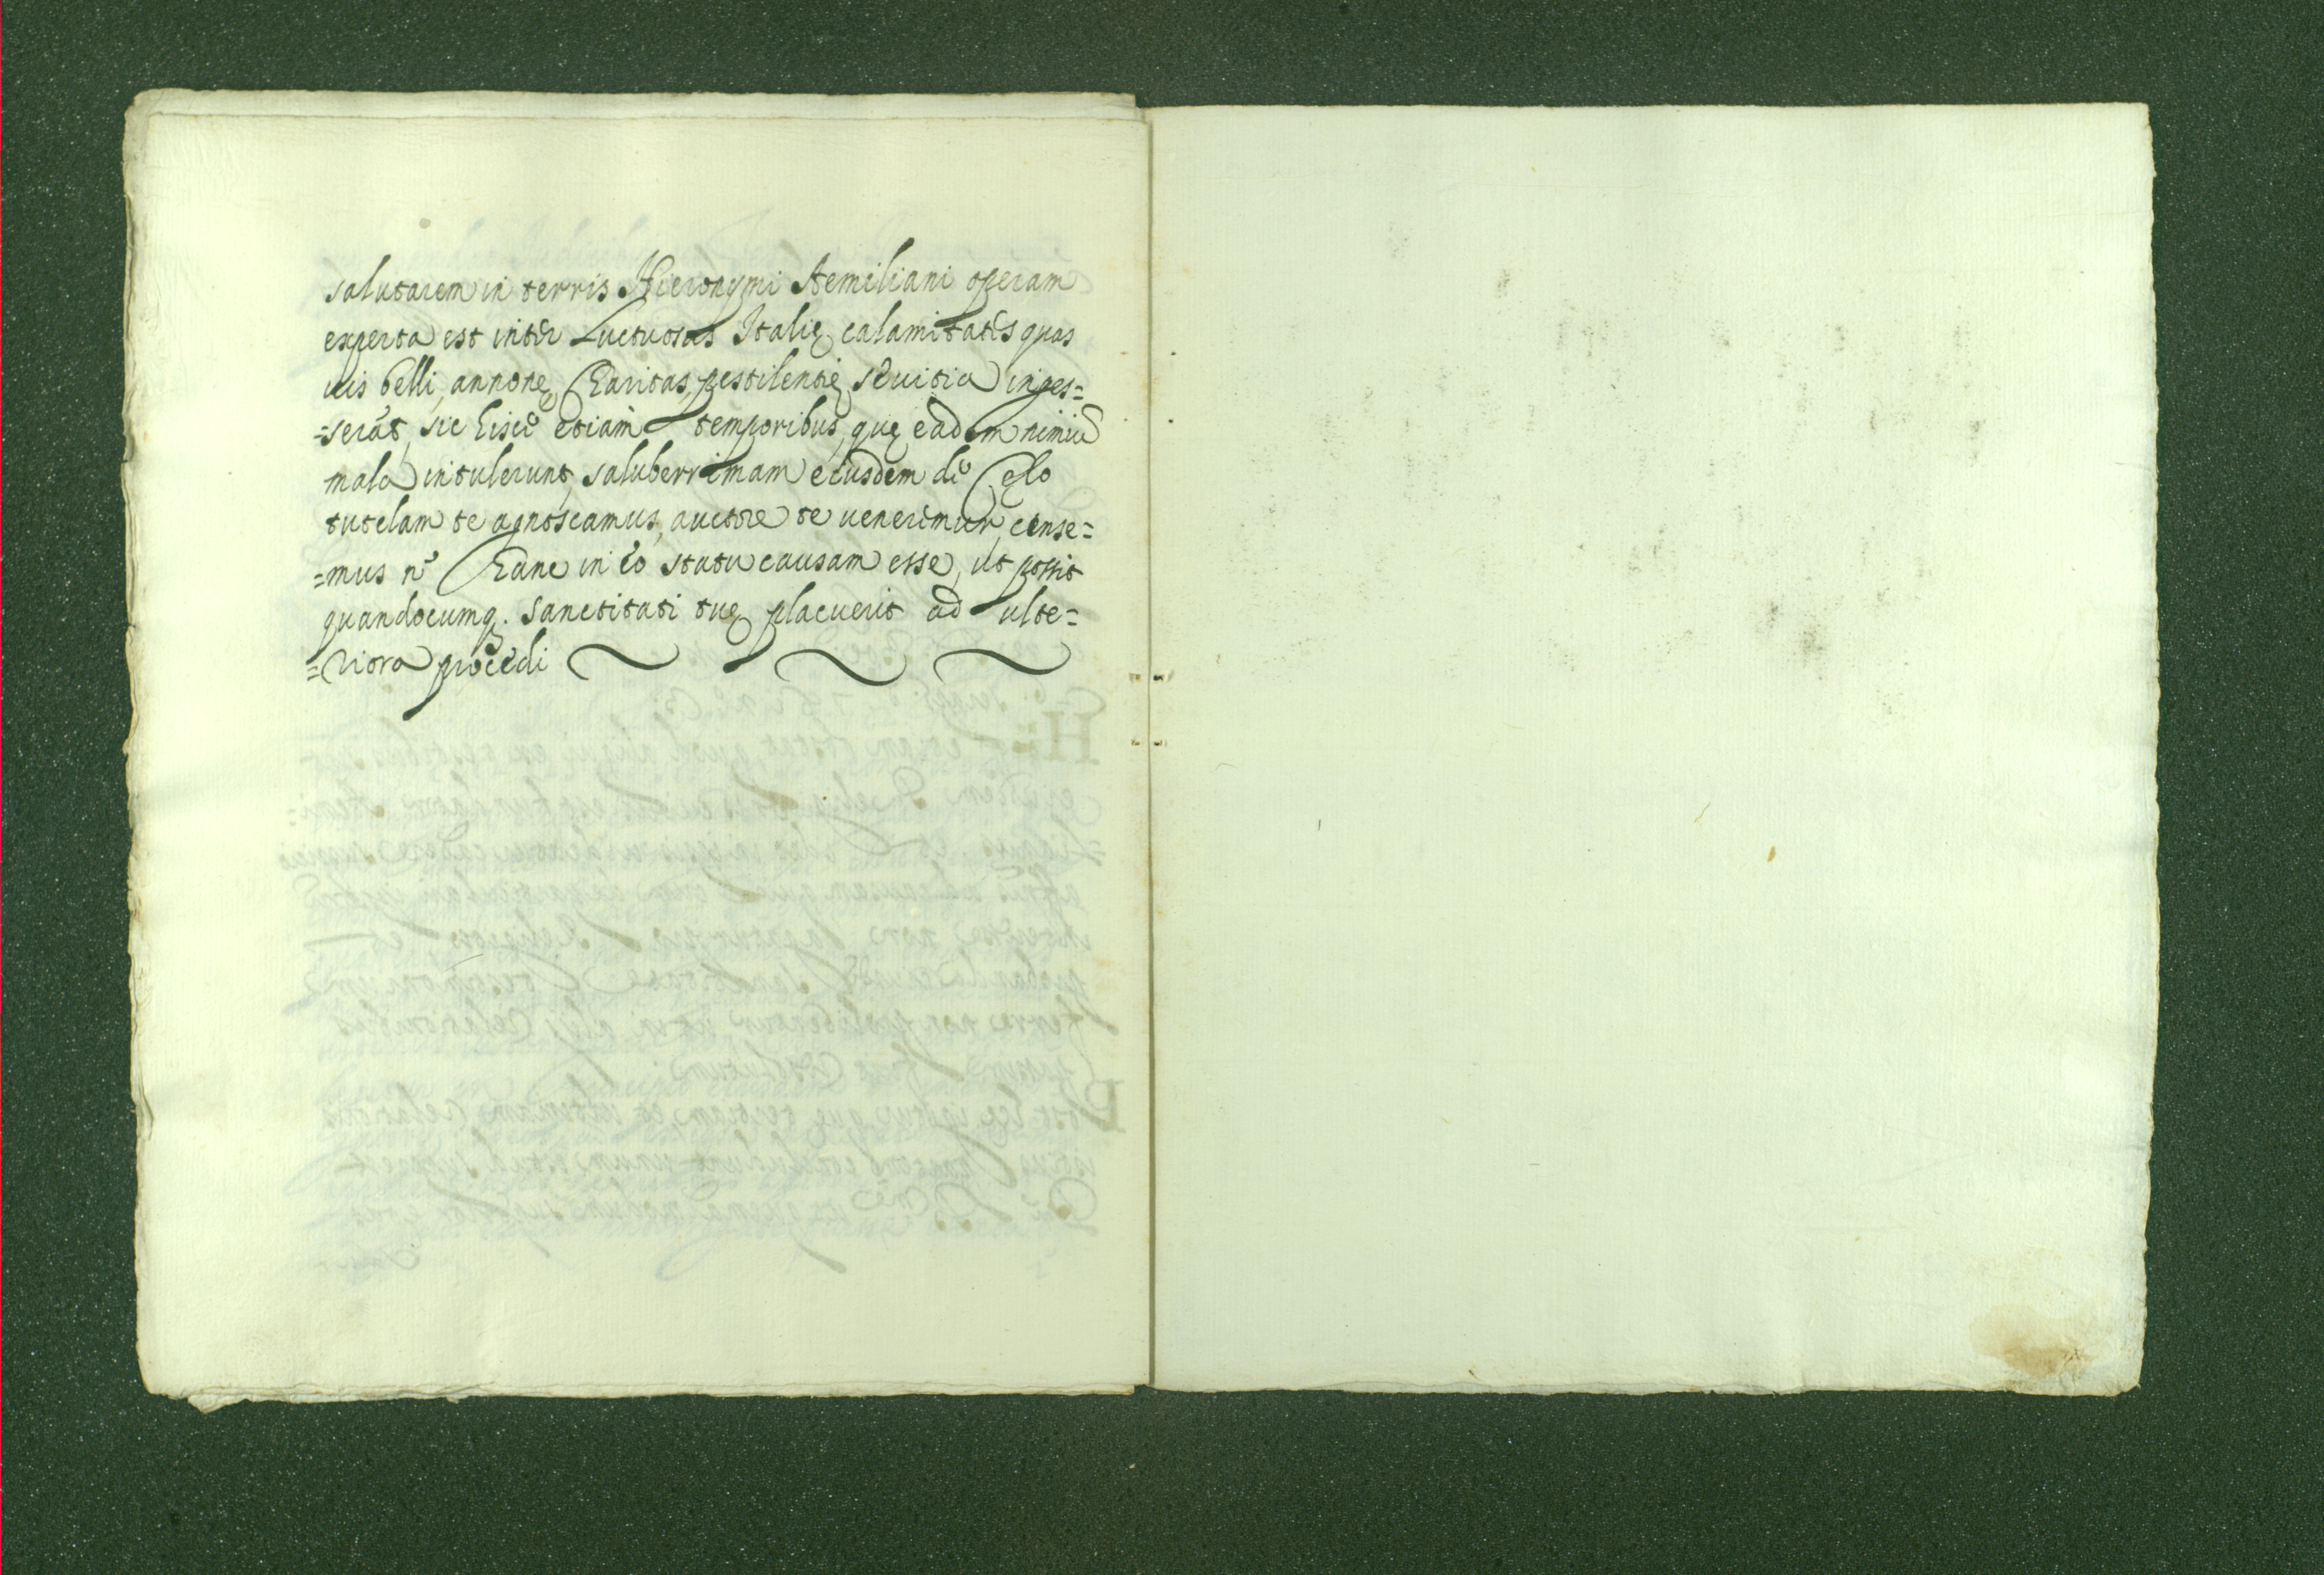 salutarem in terris Hieronymi Aemiliani operam
experta est inter Luctuosas Italię calamitates quas
uis belli, annonę Caritas, pestilentię sęuitia inges=
=serāt, sic hisce etiam temporibus, quę eadem nimiū
mala intulerunt, saluberrimam eiusdem de Cęlo
tutelam te agnoscamus, auctore te ueneremur, cense=
=mus n. hanc in eo statu causam esse, ut possit
quandocumq. sanctitati tuę placuerit ad ulte=
=riora procedi